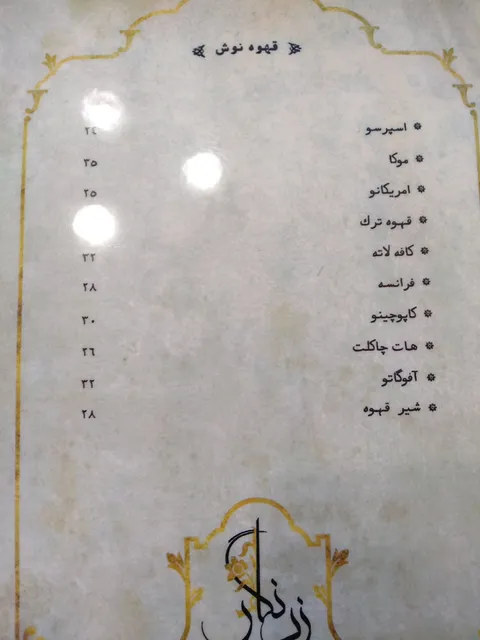 قهوه نوش
اسپرسو ۲۴
موکا ۳۵
امریکانو ۲۵
قهوه ترك
کافه لاته ۳۲
فرانسه ۲۸
کاپوچینو ۳۰
هات چاکلت ۲۶
آفوگاتو ۳۲
شیر قهوه ۲۸
زرنگار